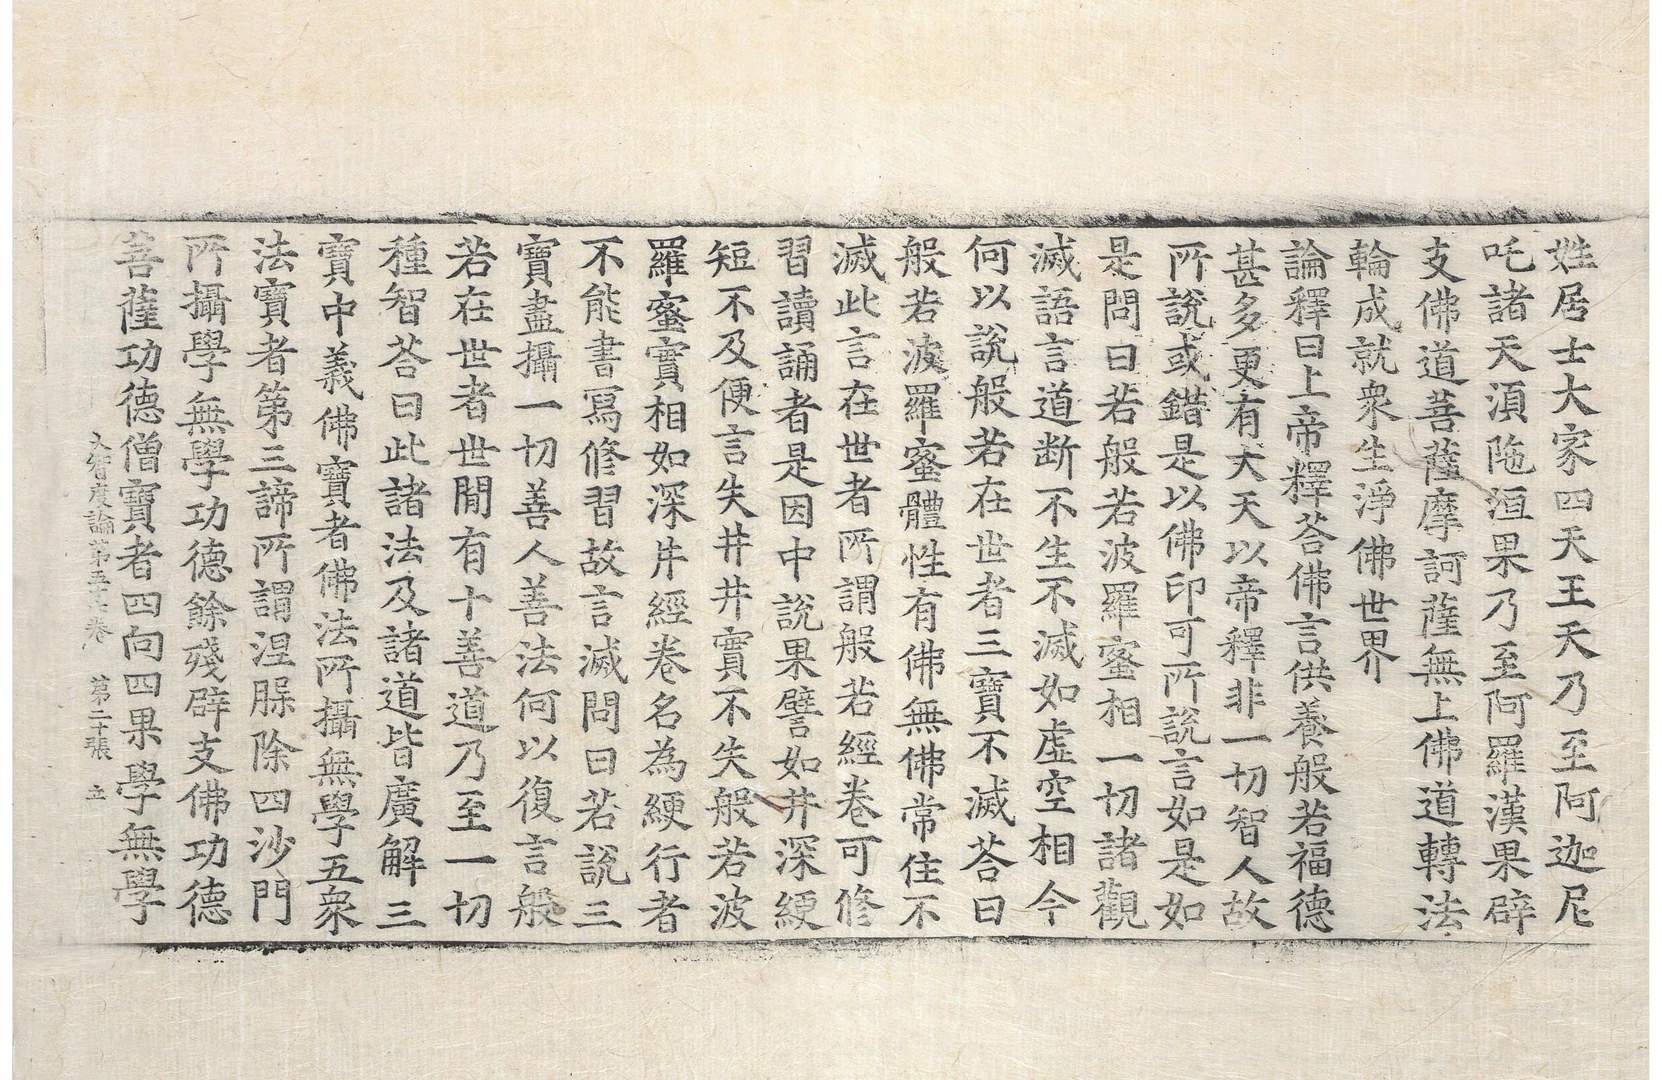 姓居士大家四天王天乃至阿迦尼
吒諸天湏陁洹果乃至阿羅漢果辟
支佛道菩薩摩訶薩無上佛道轉法
輪成就衆生淨佛世界
論釋曰上帝釋荅佛言供養般若福德
甚多更有大天以帝釋非一切智人故
所說或錯是以佛印可所說言如是如
是問曰若般若波羅蜜相一切諸觀
滅語言道断不生不滅如虛空相今
何以說般若在世者三寶不滅荅曰
般若波羅蜜體性有佛無佛常住不
滅此言在世者所謂般若經卷可修
習讀誦者是因中說果譬如井深綆
短不及便言失井井實不失般若波
羅蜜實相如深井經卷名為綆行者
不能書寫修習故言滅問曰若說三
寶盡攝一切善人善法何以復言般
若在世者世閒有十善道乃至一切
種智荅曰此諸法及諸道皆廣解三
寶中義佛寶者佛法所攝無學五衆
法寶者第三諦所謂涅脲除四沙門
所攝學無學功德餘殘辟支佛功德
菩薩功德僧寶者四向四果學無學
大智度論第五十六卷 第二十張 立